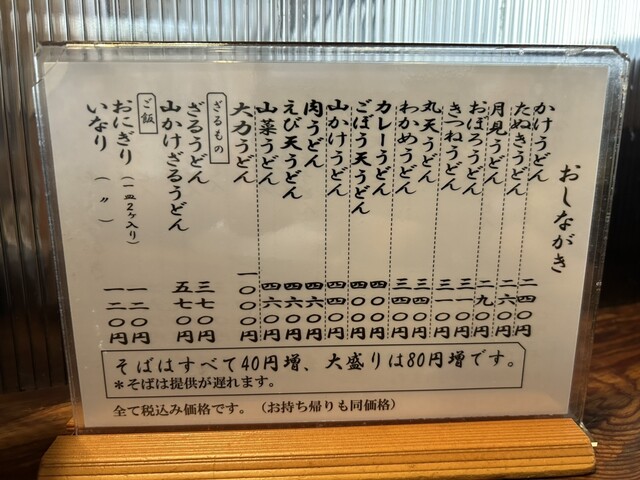 おしながき
かけうどん 二四〇円
たぬきうどん 二六〇円
月見うどん 二九〇円
おぼろうどん 三一〇円
きつねうどん 三一〇円
丸天うどん 三四〇円
わかめうどん 三四〇円
カレーうどん 四〇〇円
ごぼう天うどん 四〇〇円
山かけうどん 四四〇円
肉うどん 四六〇円
えび天うどん 四六〇円
山菜うどん 四六〇円
大力うどん 一〇〇〇円
ざるもの
ざるうどん 三七〇円
山かけざるうどん 五七〇円
ご飯
おにぎり(一皿2ヶ入り) 一二〇円
いなり(〃) 一二〇円
そばはすべて40円増、大盛りは80円増です。
*そばは提供が遅れます。
全て税込み価格です。(お持ち帰りも同価格)